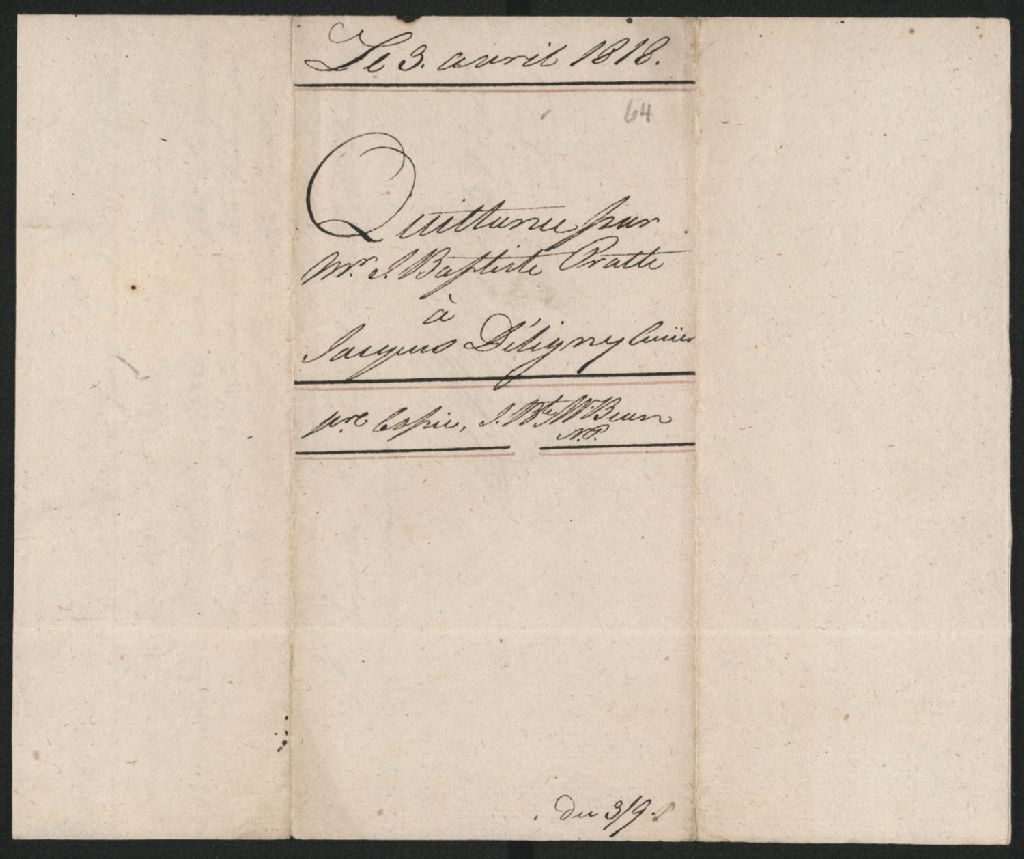 Le 3. avril 1818.
64
Quittance par
Mr. J. Baptiste Pratte
à
Jacques Déligny
pre. Copie, J. Bte
N.P.
du 3/9